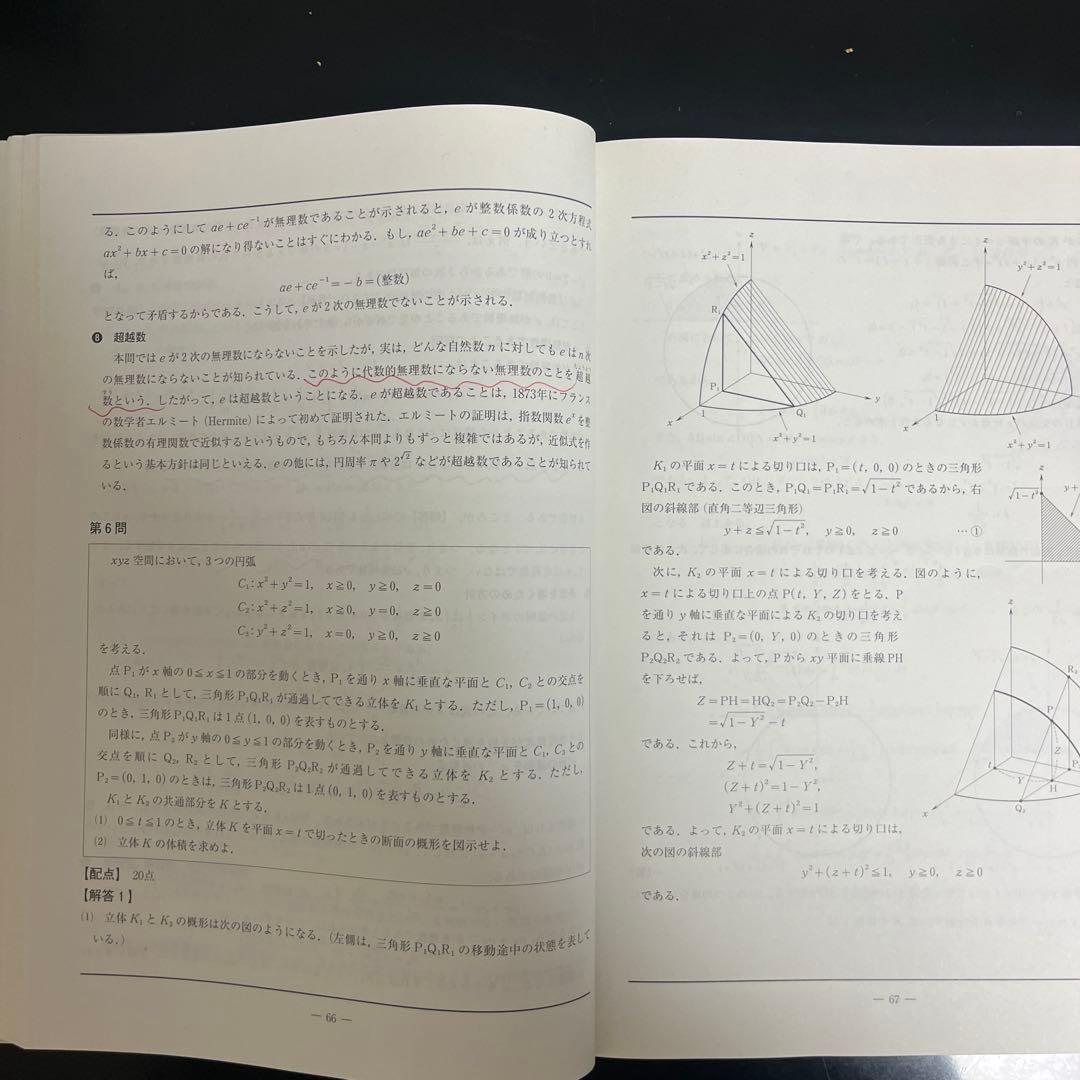 る．このようにして ae＋ce⁻¹ が無理数であることが示されると，e が整数係数の 2 次方程式
ax²＋bx＋c＝0 の解になり得ないことはすぐにわかる．もし，ae²＋be＋c＝0 が成り立つとすれ
ば，
ae＋ce⁻¹＝－b＝(整数)
となって矛盾するからである．こうして，e が 2 次の無理数でないことが示される．
❽ 超越数
本問では e が 2 次の無理数にならないことを示したが，実は，どんな自然数 n に対しても e は n 次
の無理数にならないことが知られている．このように代数的無理数にならない無理数のことを超越
数という．したがって，e は超越数ということになる．e が超越数であることは，1873年にフランス
の数学者エルミート (Hermite) によって初めて証明された．エルミートの証明は，指数関数 eˣ を整
数係数の有理関数で近似するというもので，もちろん本問よりもずっと複雑ではあるが，近似式を作
るという基本方針は同じといえる．e の他には，円周率 π や 2^√2 などが超越数であることが知られて
いる．
第6問
xyz 空間において，3 つの円弧
C₁：x²＋y²＝1， x≧0， y≧0， z＝0
C₂：x²＋z²＝1， x≧0， y＝0， z≧0
C₃：y²＋z²＝1， x＝0， y≧0， z≧0
を考える．
点 P₁ が x 軸の 0≦x≦1 の部分を動くとき，P₁ を通り x 軸に垂直な平面と C₁，C₂ との交点を
順に Q₁，R₁ として，三角形 P₁Q₁R₁ が通過してできる立体を K₁ とする．ただし，P₁＝(1, 0, 0)
のとき，三角形 P₁Q₁R₁ は 1 点 (1, 0, 0) を表すものとする．
同様に，点 P₂ が y 軸の 0≦y≦1 の部分を動くとき，P₂ を通り y 軸に垂直な平面と C₁，C₃ との
交点を順に Q₂，R₂ として，三角形 P₂Q₂R₂ が通過してできる立体を K₂ とする．ただし，
P₂＝(0, 1, 0) のときは，三角形 P₂Q₂R₂ は 1 点 (0, 1, 0) を表すものとする．
K₁ と K₂ の共通部分を K とする．
(1) 0≦t≦1 のとき，立体 K を平面 x＝t で切ったときの断面の概形を図示せよ．
(2) 立体 K の体積を求めよ．
【配点】 20点
【解答1】
(1) 立体 K₁ と K₂ の概形は次の図のようになる．(左側は，三角形 P₁Q₁R₁ の移動途中の状態を表して
いる．)
― 66 ―
z
x²＋z²＝1
R₁
P₁
1
Q₁
y
x
x²＋y²＝1
z
y²＋z²＝1
x
x²＋y²＝1
K₁ の平面 x＝t による切り口は，P₁＝(t, 0, 0) のときの三角形
P₁Q₁R₁ である．このとき，P₁Q₁＝P₁R₁＝√(1－t²) であるから，右
図の斜線部 (直角二等辺三角形)
y＋z≦√(1－t²)， y≧0， z≧0 …①
である．
z
√(1－t²)
次に，K₂ の平面 x＝t による切り口を考える．図のように，
x＝t による切り口上の点 P(t, Y, Z) をとる．P
を通り y 軸に垂直な平面による K₂ の切り口を考え
ると，それは P₂＝(0, Y, 0) のときの三角形
P₂Q₂R₂ である．よって，P から xy 平面に垂線 PH
を下ろせば，
Z＝PH＝HQ₂＝P₂Q₂－P₂H
＝√(1－Y²)－t
である．これから，
Z＋t＝√(1－Y²)，
(Z＋t)²＝1－Y²，
Y²＋(Z＋t)²＝1
である．よって，K₂ の平面 x＝t による切り口は，
次の図の斜線部
y²＋(z＋t)²≦1， y≧0， z≧0
である．
z
R₂
P
Z
t
Y
H
Q₂
x
― 67 ―